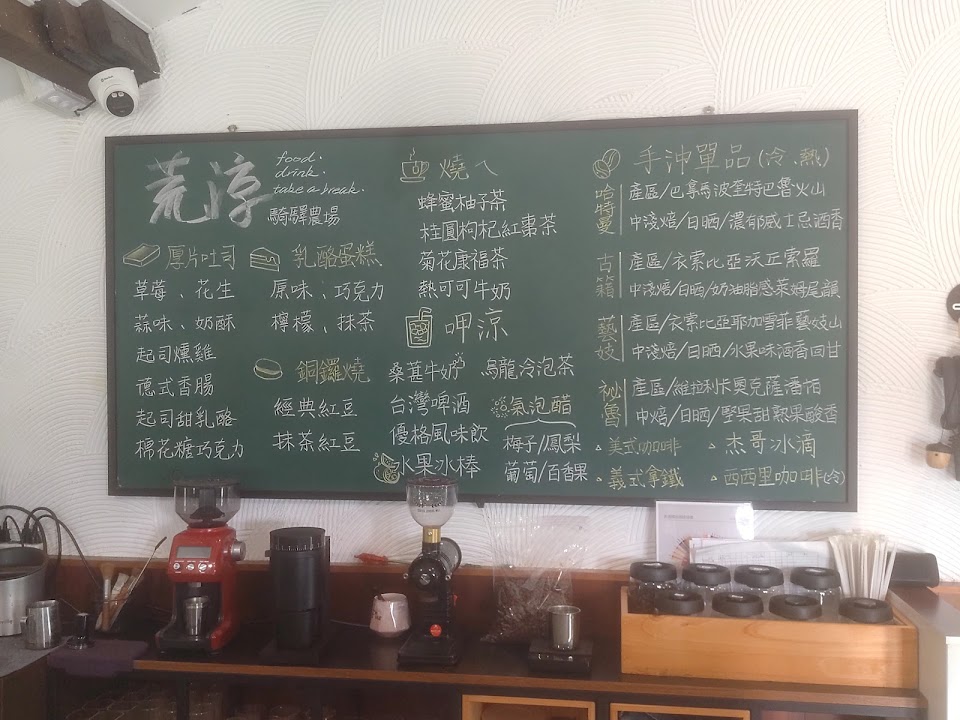 荒涼
food.
drink.
take a break.
騎驛農場
厚片吐司
草莓、花生
蒜味、奶酥
起司燻雞
德式香腸
起司甜乳酪
棉花糖巧克力
乳酪蛋糕
原味、巧克力
檸檬、抹茶
銅鑼燒
經典紅豆
抹茶紅豆
燒ㄟ
蜂蜜柚子茶
桂圓枸杞紅棗茶
菊花康福茶
熱可可牛奶
呷涼
桑葚牛奶 烏龍冷泡茶
台灣啤酒
優格風味飲
水果冰棒
氣泡醋
梅子/鳳梨
葡萄/百香果
手沖單品(冷.熱)
哈特曼
產區/巴拿馬波奎特巴魯火山
中淺焙/日晒/濃郁威士忌酒香
古籍
產區/衣索比亞沃正索羅
中淺焙/日晒/奶油脂感萊姆尾韻
藝妓
產區/衣索比亞耶加雪菲藝妓山
中淺焙/日晒/水果味酒香回甘
祕魯
產區/維拉利卡奧克薩潘柏
中焙/日晒/堅果甜熟果酸香
美式咖啡
杰哥冰滴
義式拿鐵
西西里咖啡(冷)